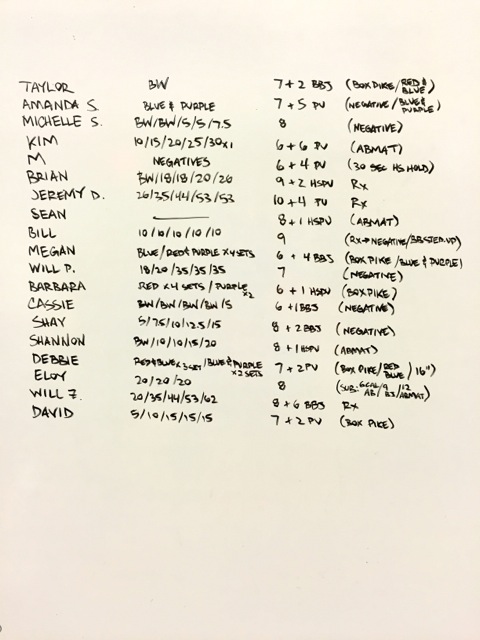 TAYLOR BW 7 + 2 BBJ (BOX PIKE/RED & BLUE)
AMANDA S. BLUE & PURPLE 7 + 5 PV (NEGATIVE/BLUE & PURPLE)
MICHELLE S. BW/BW/5/5/7.5 8 (NEGATIVE)
KIM 10/15/20/25/30x1 6 + 6 PV (ABMAT)
M NEGATIVES 6 + 4 PV (30 SEC HS HOLD)
BRIAN BW/18/18/20/26 9 + 2 HSPU Rx
JEREMY D. 26/35/44/53/53 10 + 4 PV Rx
SEAN — 8 + 1 HSPU (ABMAT)
BILL 10/10/10/10/10 9 (RX→NEGATIVE/BB STEP UP)
MEGAN BLUE/RED & PURPLE x 4 SETS 6 + 4 BBJ (BOX PIKE/BLUE & PURPLE)
WILL P. 18/20/35/35/35 7 (NEGATIVE)
BARBARA RED x 4 SETS / PURPLE x2 6 + 1 HSPU (BOX PIKE)
CASSIE BW/BW/BW/BW/5 6 + 1 BBJ (NEGATIVE)
SHAY 5/7.5/10/12.5/15 8 + 2 BBJ (NEGATIVE)
SHANNON BW/10/10/15/20 8 + 1 HSPU (ABMAT)
DEBBIE RED & BLUE x 3 SET/BLUE & PURPLE x 2 SETS 7 + 2 PV (BOX PIKE/RED BLUE/16")
ELOY 20/20/20 8 (SUB: 6 CAL AB/9 BJ/12 ABMAT)
WILL Z. 20/35/44/53/62 8 + 6 BBJ Rx
DAVID 5/10/15/15/15 7 + 2 PV (BOX PIKE)